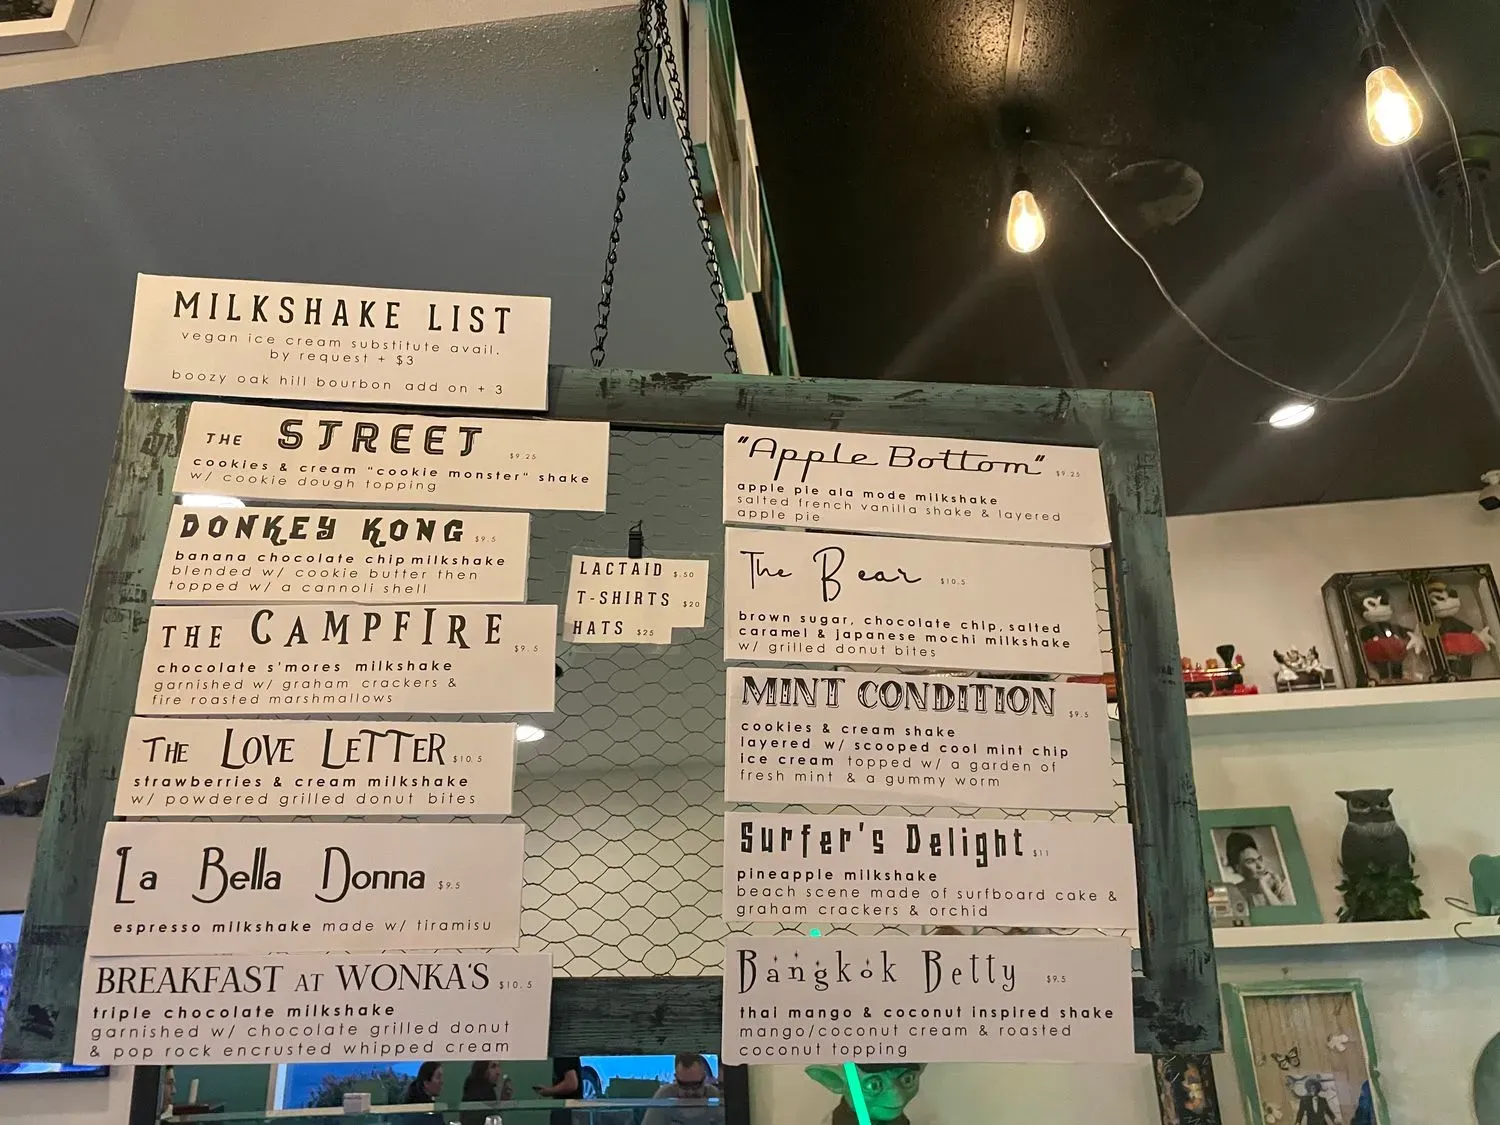 MILKSHAKE LIST
vegan ice cream substitute avail.
by request + $3
boozy oak hill bourbon add on + 3
THE STREET $9.25
cookies & cream "cookie monster" shake
w/ cookie dough topping
DONKEY KONG $9.5
banana chocolate chip milkshake
blended w/ cookie butter then
topped w/ a cannoli shell
THE CAMPFIRE $9.5
chocolate s'mores milkshake
garnished w/ graham crackers &
fire roasted marshmallows
THE LOVE LETTER $10.5
strawberries & cream milkshake
w/ powdered grilled donut bites
La Bella Donna $9.5
espresso milkshake made w/ tiramisu
BREAKFAST AT WONKA'S $10.5
triple chocolate milkshake
garnished w/ chocolate grilled donut
& pop rock encrusted whipped cream
LACTAID $.50
T-SHIRTS $20
HATS $25
"Apple Bottom" $9.25
apple pie ala mode milkshake
salted french vanilla shake & layered
apple pie
The Bear $10.5
brown sugar, chocolate chip, salted
caramel & japanese mochi milkshake
w/ grilled donut bites
MINT CONDITION $9.5
cookies & cream shake
layered w/ scooped cool mint chip
ice cream topped w/ a garden of
fresh mint & a gummy worm
Surfer's Delight $11
pineapple milkshake
beach scene made of surfboard cake &
graham crackers & orchid
Bangkok Betty $9.5
thai mango & coconut inspired shake
mango/coconut cream & roasted
coconut topping